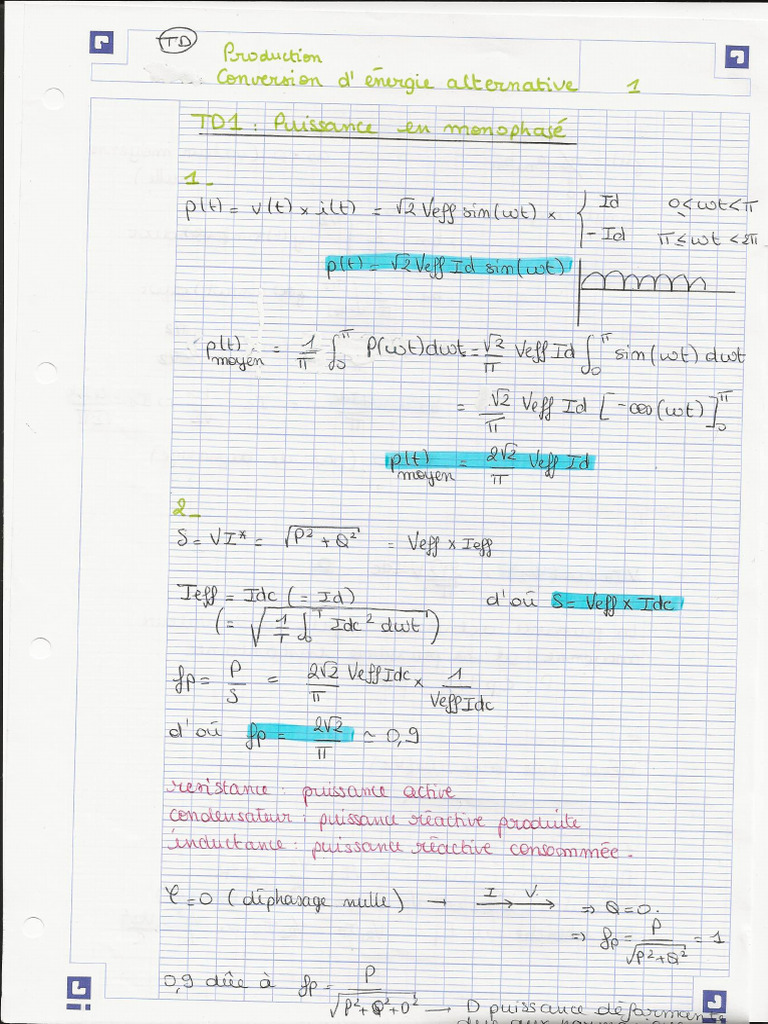 TD Production
Conversion d'énergie alternative 1
TD1 : Puissance en monophasé
1_
p(t) = v(t) × i(t) = √2 Veff sin(ωt) × { Id 0≤ωt<π
-Id π≤ωt<2π
p(t) = √2 Veff Id sin(ωt)
p(t) moyen = 1/π ∫₀^π P(ωt)dωt = √2/π Veff Id ∫₀^π sin(ωt) dωt
= √2/π Veff Id [-cos(ωt)]₀^π
p(t) moyen = 2√2/π Veff Id
2_
S = VI* = √(P² + Q²) = Veff × Ieff
Ieff = Idc (= Id) d'où S = Veff × Idc
(= √(1/T ∫₀^T Idc² dωt))
fp = P/S = 2√2/π VeffIdc × 1/VeffIdc
d'où fp = 2√2/π ≃ 0,9
resistance : puissance active
condensateur : puissance réactive produite
inductance : puissance réactive consommée.
φ=0 (déphasage nulle) → I V ⇒ Q=0.
⇒ fp = P/√(P²+Q²) = 1
0,9 dûe à fp = P/√(P²+Q²+D²) → D puissance déformante
due aux harmoniques